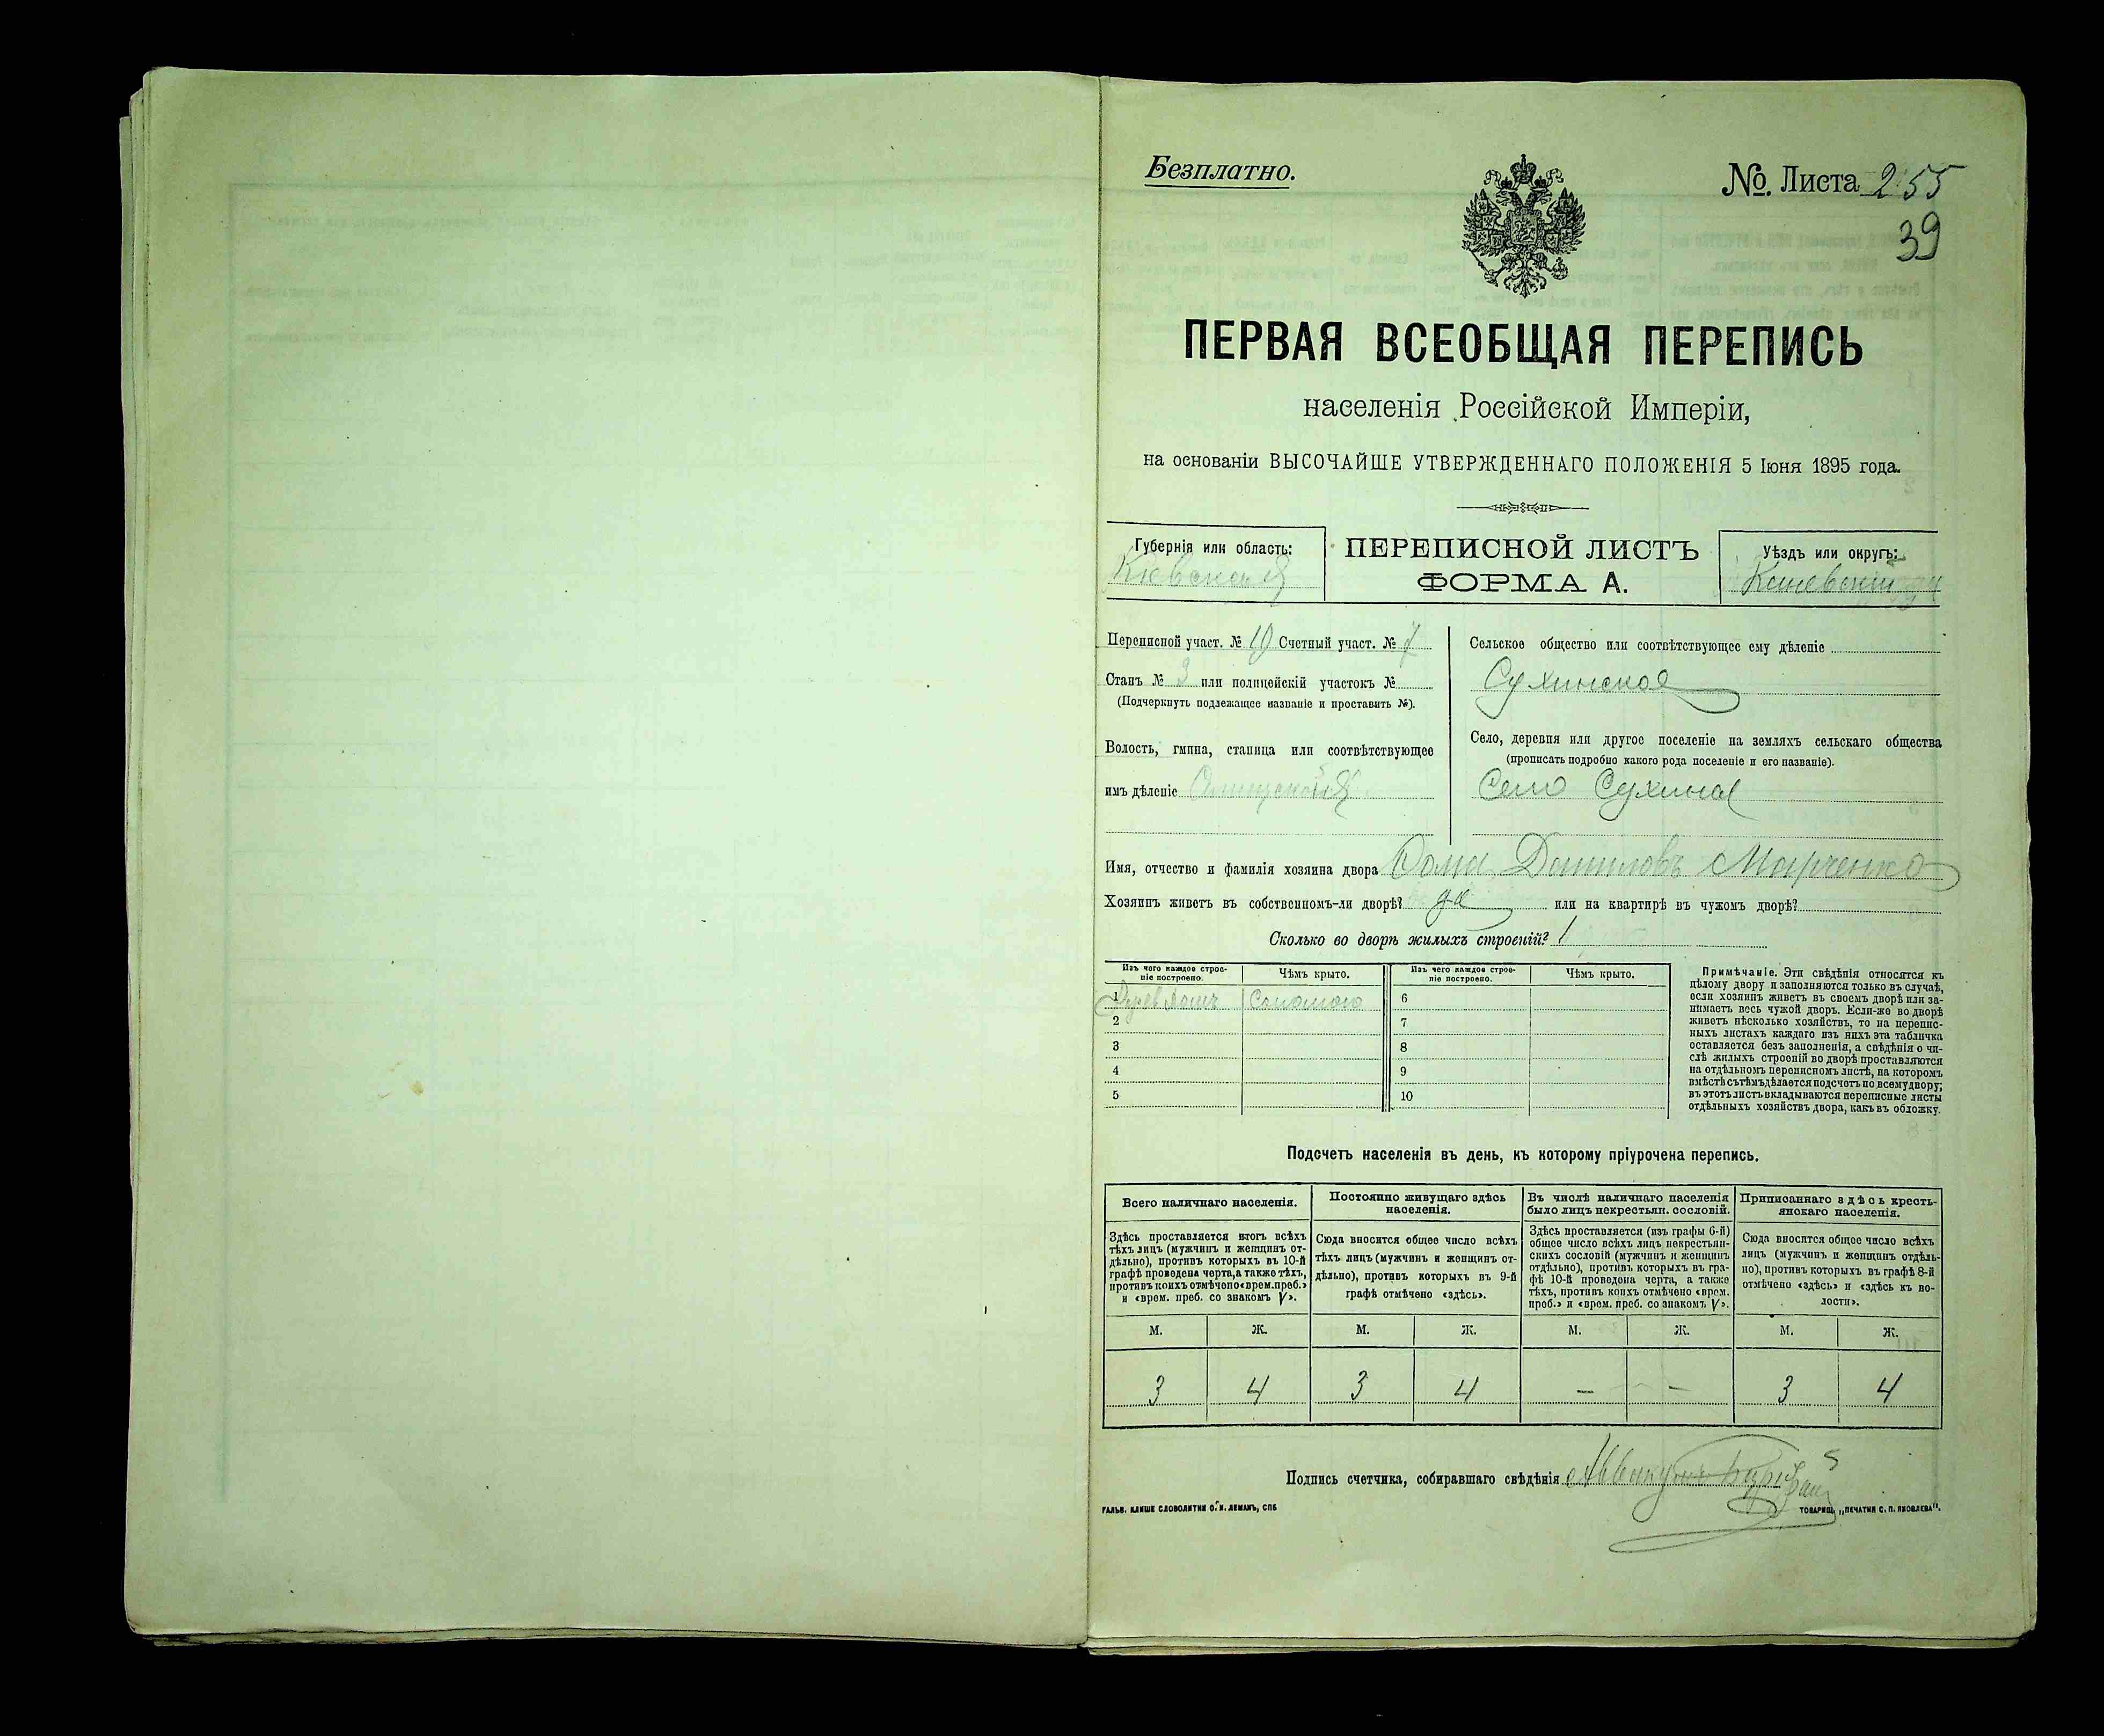 Безплатно.
No. Листа 255
39
ПЕРВАЯ ВСЕОБЩАЯ ПЕРЕПИСЬ
населенія Россійской Имперіи,
на основаніи ВЫСОЧАЙШЕ УТВЕРЖДЕННАГО ПОЛОЖЕНІЯ 5 Іюня 1895 года.
Губернія или область:
Кіевская
ПЕРЕПИСНОЙ ЛИСТЪ
ФОРМА А.
Уѣздъ или округъ:
Каневскій
Переписной участ. № 10 Счетный участ. № 7
Станъ № 3 или полицейскій участокъ №
(Подчеркнуть подлежащее названіе и проставить №).
Волость, гмина, станица или соотвѣтствующее
имъ дѣленіе
Сельское общество или соотвѣтствующее ему дѣленіе
Сухинское
Село, деревня или другое поселеніе на земляхъ сельскаго общества
(прописать подробно какого рода поселеніе и его названіе).
Село Сухина
Имя, отчество и фамилія хозяина двора Фома Даниловъ Марченко
Хозяинъ живетъ въ собственномъ-ли дворѣ? да или на квартирѣ въ чужомъ дворѣ?
Сколько во дворѣ жилыхъ строеній? 1
Изъ чего каждое строе-
ніе построено.
Чѣмъ крыто.
Изъ чего каждое строе-
ніе построено.
Чѣмъ крыто.
1 Соломою 6
2 7
3 8
4 9
5 10
Примѣчаніе. Эти свѣдѣнія относятся къ
цѣлому двору и заполняются только въ случаѣ,
если хозяинъ живетъ въ своемъ дворѣ или за-
нимаетъ весь чужой дворъ. Если-же во дворѣ
живетъ нѣсколько хозяйствъ, то на перепис-
ныхъ листахъ каждаго изъ нихъ эта табличка
оставляется безъ заполненія, а свѣдѣнія о чи-
слѣ жилыхъ строеній во дворѣ проставляются
на отдѣльномъ переписномъ листѣ, на которомъ
вмѣстѣ съ тѣмъ дѣлается подсчетъ по всему двору;
въ этотъ листъ вкладываются переписные листы
отдѣльныхъ хозяйствъ двора, какъ въ обложку.
Подсчетъ населенія въ день, къ которому пріурочена перепись.
Всего наличнаго населенія.
Здѣсь проставляется итогъ всѣхъ
тѣхъ лицъ (мужчинъ и женщинъ от-
дѣльно), противъ которыхъ въ 10-й
графѣ проведена черта, а также тѣхъ,
противъ коихъ отмѣчено «врем. преб.»
и «врем. преб. со знакомъ V».
Постоянно живущаго здѣсь
населенія.
Сюда вносится общее число всѣхъ
тѣхъ лицъ (мужчинъ и женщинъ от-
дѣльно), противъ которыхъ въ 9-й
графѣ отмѣчено «здѣсь».
Въ числѣ наличнаго населенія
было лицъ некрестьян. сословій.
Здѣсь проставляется (изъ графы 6-й)
общее число всѣхъ лицъ некрестьян-
скихъ сословій (мужчинъ и женщинъ
отдѣльно), противъ которыхъ въ гра-
фѣ 10-й проведена черта, а также
тѣхъ, противъ коихъ отмѣчено «врем.
преб.» и «врем. преб. со знакомъ V».
Приписаннаго здѣсь кресть-
янскаго населенія.
Сюда вносится общее число всѣхъ
лицъ (мужчинъ и женщинъ отдѣль-
но), противъ которыхъ въ графѣ 8-й
отмѣчено «здѣсь» и «здѣсь къ во-
лости».
М. Ж. М. Ж. М. Ж. М. Ж.
3 4 3 4 – – 3 4
Подпись счетчика, собиравшаго свѣдѣнія
ГАЛЬВ. КЛИШЕ СЛОВОЛИТНИ О. И. ЛЕМАНЪ, СПБ
ТОВАРИЩ. „ПЕЧАТНЯ С. П. ЯКОВЛЕВА".